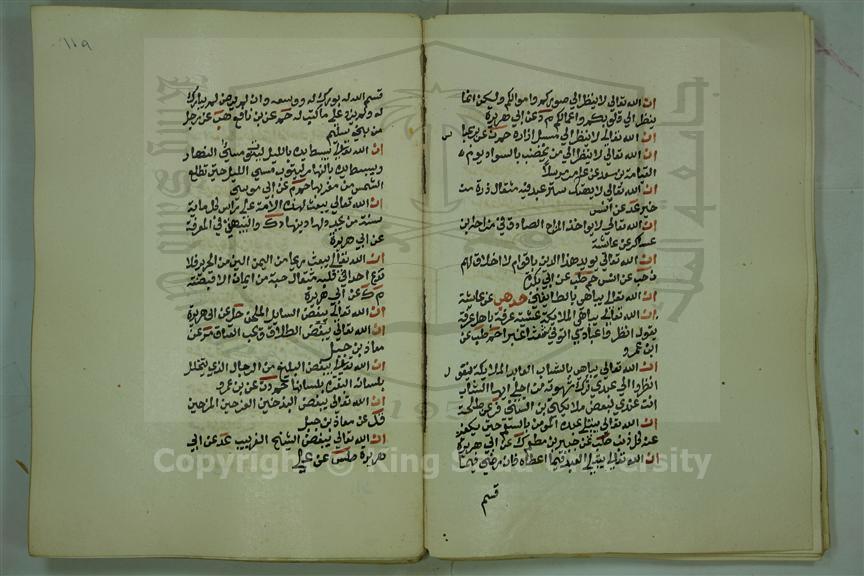 ان الله تعالى لا ينظر الى صوركم واموالكم ولكن انما
ينظر الى قلوبكم واعمالكم م ه عن ابى هريرة
ان الله تعالى لا ينظر الى مسبل ازاره حم ن عن ابن عباس
ان الله تعالى لا ينظر الى من يخضب بالسواد يوم
القيامة بن سعد عن عامر مرسلا
ان الله تعالى لا يهتك ستر عبد فيه مثقال ذرة من
خير عد عن انس
ان الله تعالى لا يواخذ المزاح الصادق فى مزاحه ابن
عساكر عن عائشة
ان الله تعالى يويد هذا الدين باقوام لا خلاق لهم
ن حب عن انس حم طب عن ابى بكرة
ان الله تعالى يباهى بالطائفين حل هب عن عائشة
ان الله تعالى يباهى الملائكة عشية عرفة باهل عرفة
يقول انظروا عبادى اتونى شعثا غبرا حم طب عن
ابن عمرو
ان الله تعالى يباهى بالشاب العابد الملائكة فيقول
انظروا الى عبدى ترك شهوته من اجلى ايها الشاب
انت عندى كبعض ملائكتى بن السنى فر عن طلحة
ان الله تعالى يبتلى عبده المومن بالسقم حتى يكفر
عنه كل ذنب طب عن جبير بن مطعم ك عن ابى هريرة
ان الله تعالى يبتلى العبد فيما اعطاه فان رضى بما
قسم
١١٩
قسم الله له بورك له ووسعه وان لم يرض لم يبارك
له ولم يزد على ما كتب له حم عن بن قانع هب عن رجل
من بنى سليم
ان الله تعالى يبسط يده بالليل ليتوب مسئ النهار
ويبسط يده بالنهار ليتوب مسئ الليل حتى تطلع
الشمس من مغربها حم م عن ابى موسى
ان الله تعالى يبعث لهذه الامة على راس كل ماية
سنة من يجدد لها دينها د ك والبيهقى فى المعرفة
عن ابى هريرة
ان الله تعالى يبعث ريحا من اليمن الين من الحرير فلا
تدع احدا فى قلبه مثقال حبة من ايمان الا قبضته
م ك عن ابى هريرة
ان الله تعالى يبغض السائل الملحف حل عن ابى هريرة
ان الله تعالى يبغض الطلاق ويحب العتاق فر عن
معاذ بن جبل
ان الله تعالى يبغض البليغ من الرجال الذى يتخلل
بلسانه البقرة بلسانها حم د ت عن بن عمرو
ان الله تعالى يبغض البذخين الفرحين المرحين
فر عن معاذ بن جبل
ان الله تعالى يبغض الشيخ الغربيب عد عن ابى
هريرة طس عن على
Copyright © King Saud University